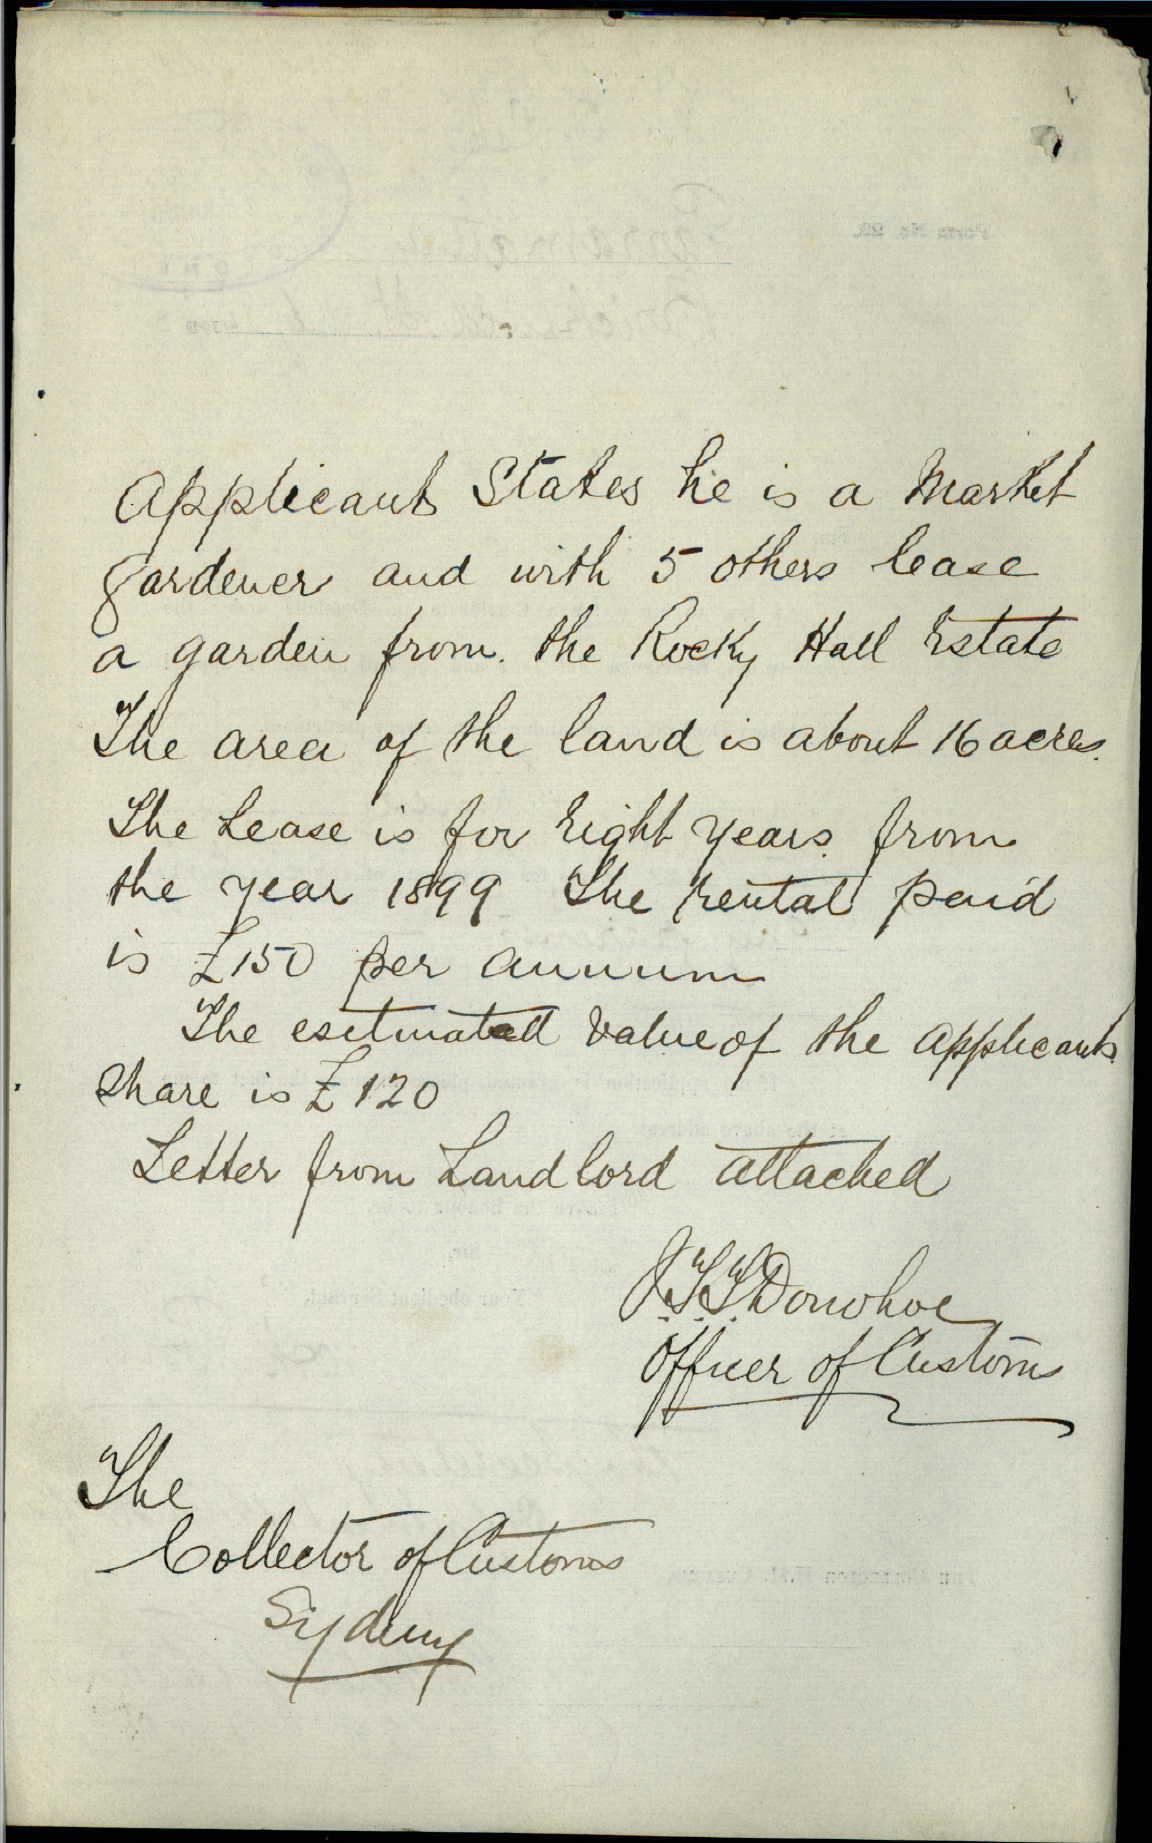 Applicant States he is a Market
gardener and with 5 others lease
a garden from. the Rocky Hall Estate
The area of the land is about 16 acres.
The Lease is for Eight years. from
the year 1899 The rental paid
is £150 per annum
The esetimated value of the applicants
share is £120
Letter from Landlord attached
J.T.T. Donohoe
Officer of Customs
The
Collector of Customs
Sydney